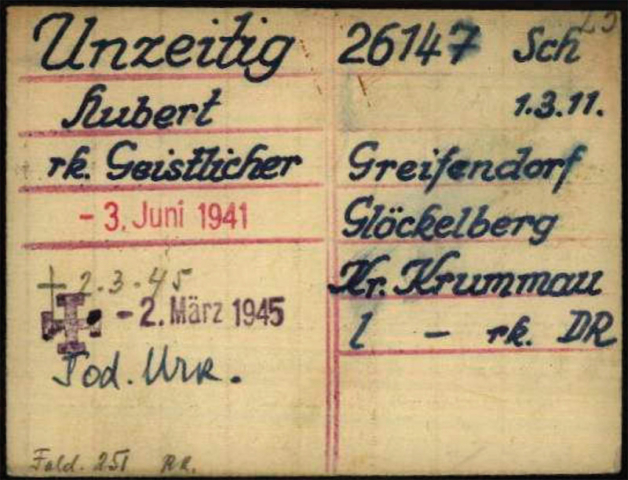 Unzeitig
Hubert
rk. Geistlicher
- 3. Juni 1941
+ 2.3.45
- 2. März 1945
Tod. Urk.
Feld. 251 RR.
26147 Sch
1.3.11.
Greifendorf
Glöckelberg
Kr. Krummau
l - rk. DR